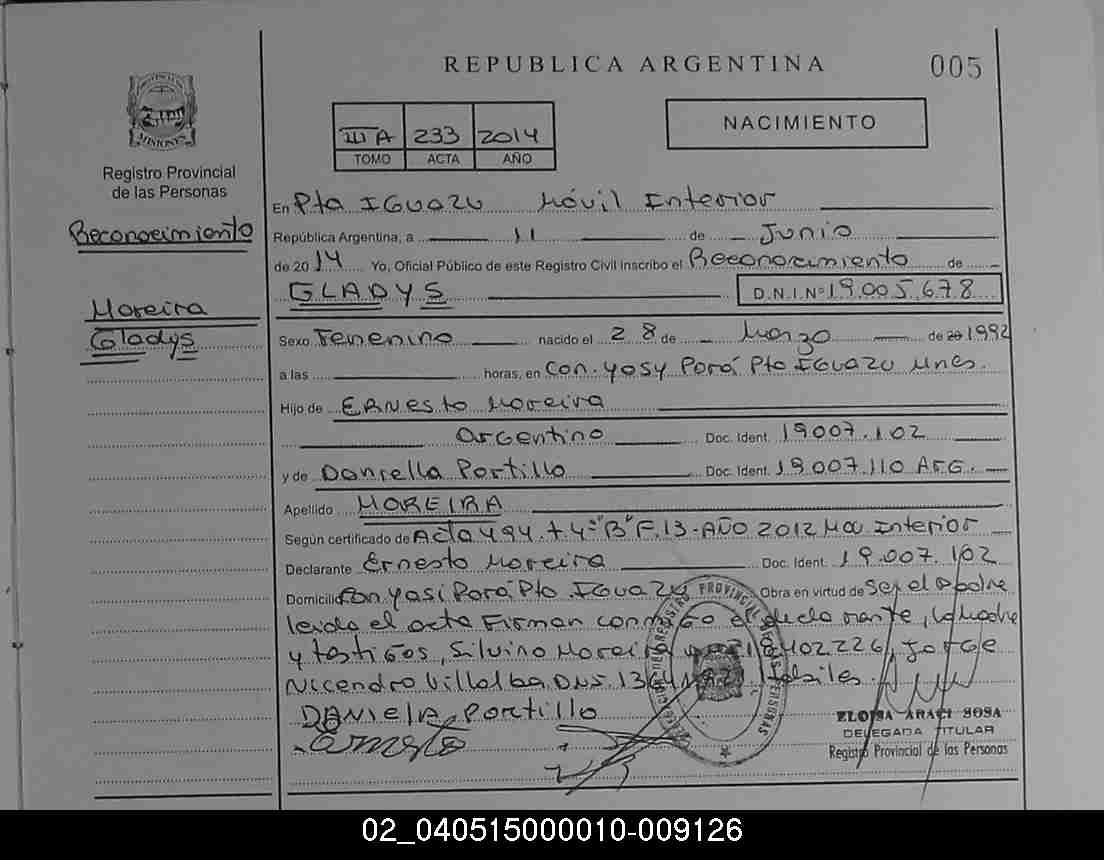 REPUBLICA ARGENTINA
005
III A 233 2014
TOMO ACTA AÑO
NACIMIENTO
MISIONES
Registro Provincial
de las Personas
Reconocimiento
Moreira
Gladys
En Pto IGUAZU Móvil Interior
República Argentina, a 11 de Junio
de 2014 Yo, Oficial Público de este Registro Civil inscribo el Reconocimiento de
GLADYS D.N.I.Nº 19.005.678
Sexo Femenino nacido el 28 de Marzo de 20 1992
a las horas, en Con. Yosy Porá Pto IGUAZU Mnes.
Hijo de ERNesto Moreira
Argentino Doc. Ident. 19007.102
y de Daniella Portillo Doc. Ident. 19.007.110 ARG.
Apellido MOREIRA
Según certificado de Acta 494. t. 4º "B" F. 13 - AÑO 2012 Mov Interior
Declarante Ernesto Moreira Doc. Ident. 19.007.102
Domicilio Con Yasi Porá Pto. IGUAZU Obra en virtud de Ser el padre
leida el acta Firman conmigo el declarante, la madre
y testigos, Silvino Moreira 402226, Jorge
Nicendro Villalba DNI. 13 habiles.
DANIELA PORTILLO
Ernesto
REGISTRO PROVINCIAL DE LAS PERSONAS
ELOISA ARACI SOSA
DELEGADA TITULAR
Registro Provincial de las Personas
02_040515000010-009126